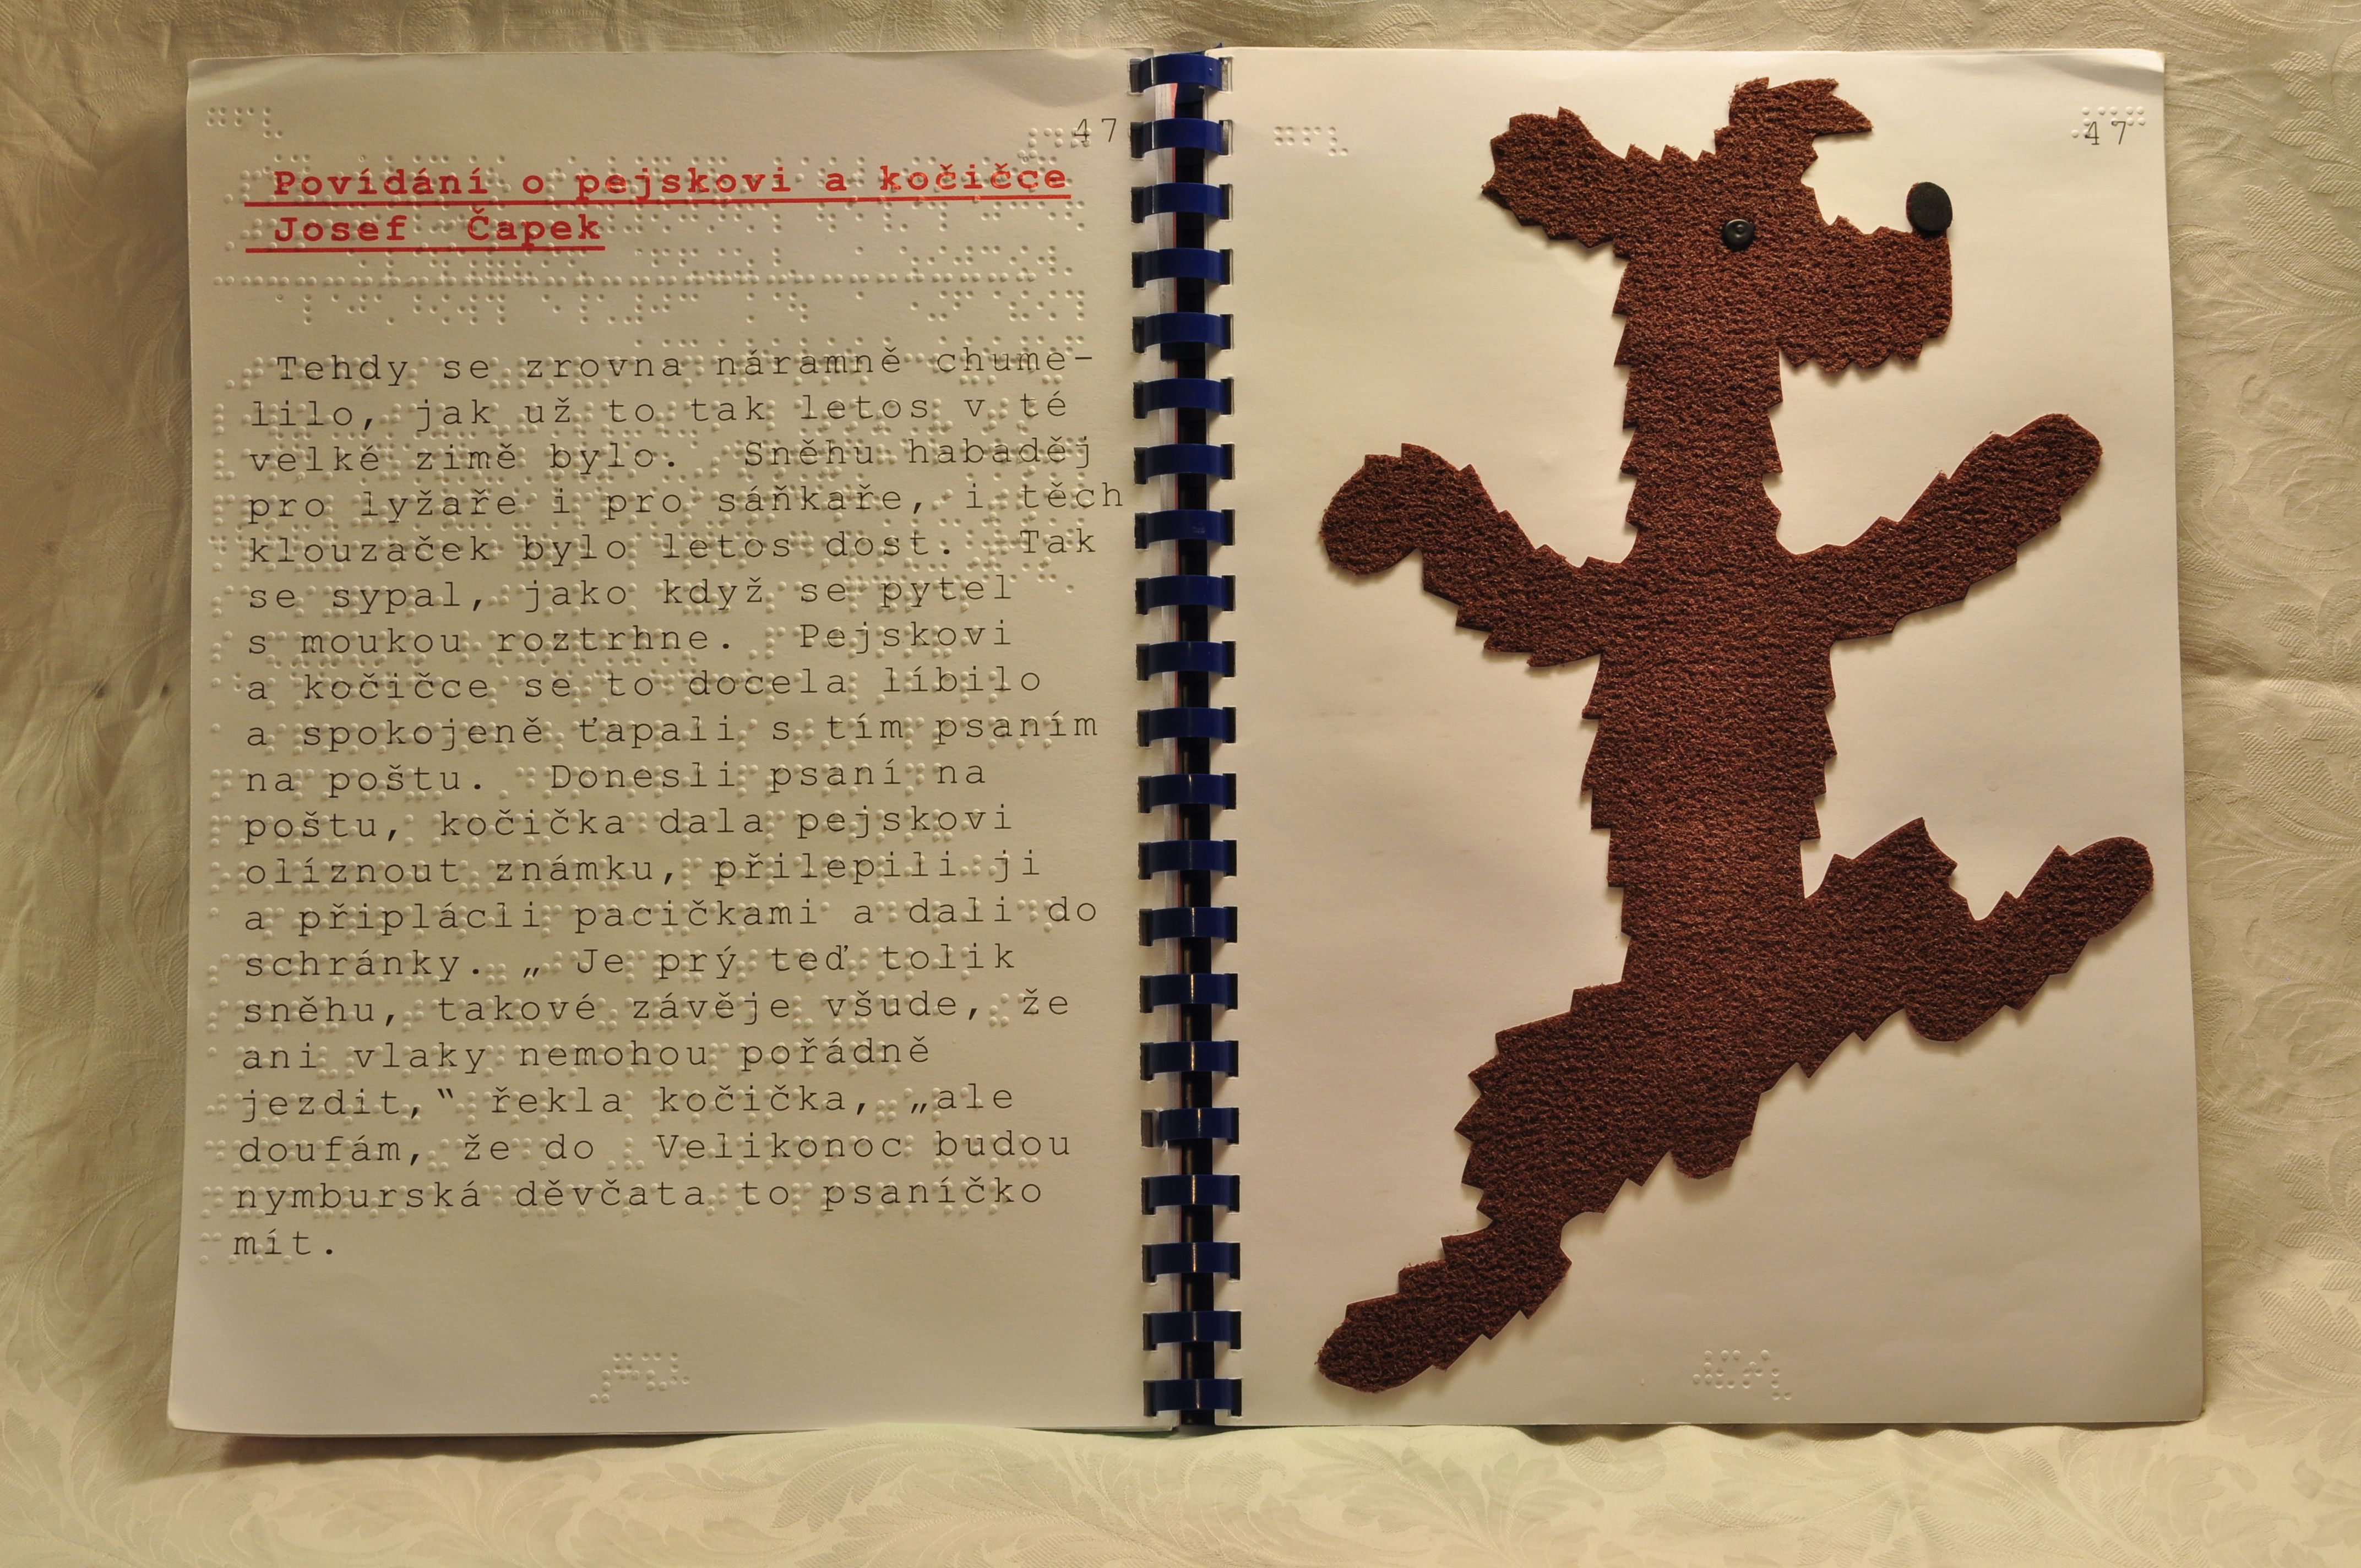 47
Povídání o pejskovi a kočičce
Josef Čapek
Tehdy se zrovna náramně chume-
lilo, jak už to tak letos v té
velké zimě bylo. Sněhu habaděj
pro lyžaře i pro sáňkaře, i těch
klouzaček bylo letos dost. Tak
se sypal, jako když se pytel
s moukou roztrhne. Pejskovi
a kočičce se to docela líbilo
a spokojeně ťapali s tím psaním
na poštu. Donesli psaní na
poštu, kočička dala pejskovi
olíznout známku, přilepili ji
a připlácli pacičkami a dali do
schránky. „ Je prý teď tolik
sněhu, takové závěje všude, že
ani vlaky nemohou pořádně
jezdit,‟ řekla kočička, „ale
doufám, že do Velikonoc budou
nymburská děvčata to psaníčko
mít.
47